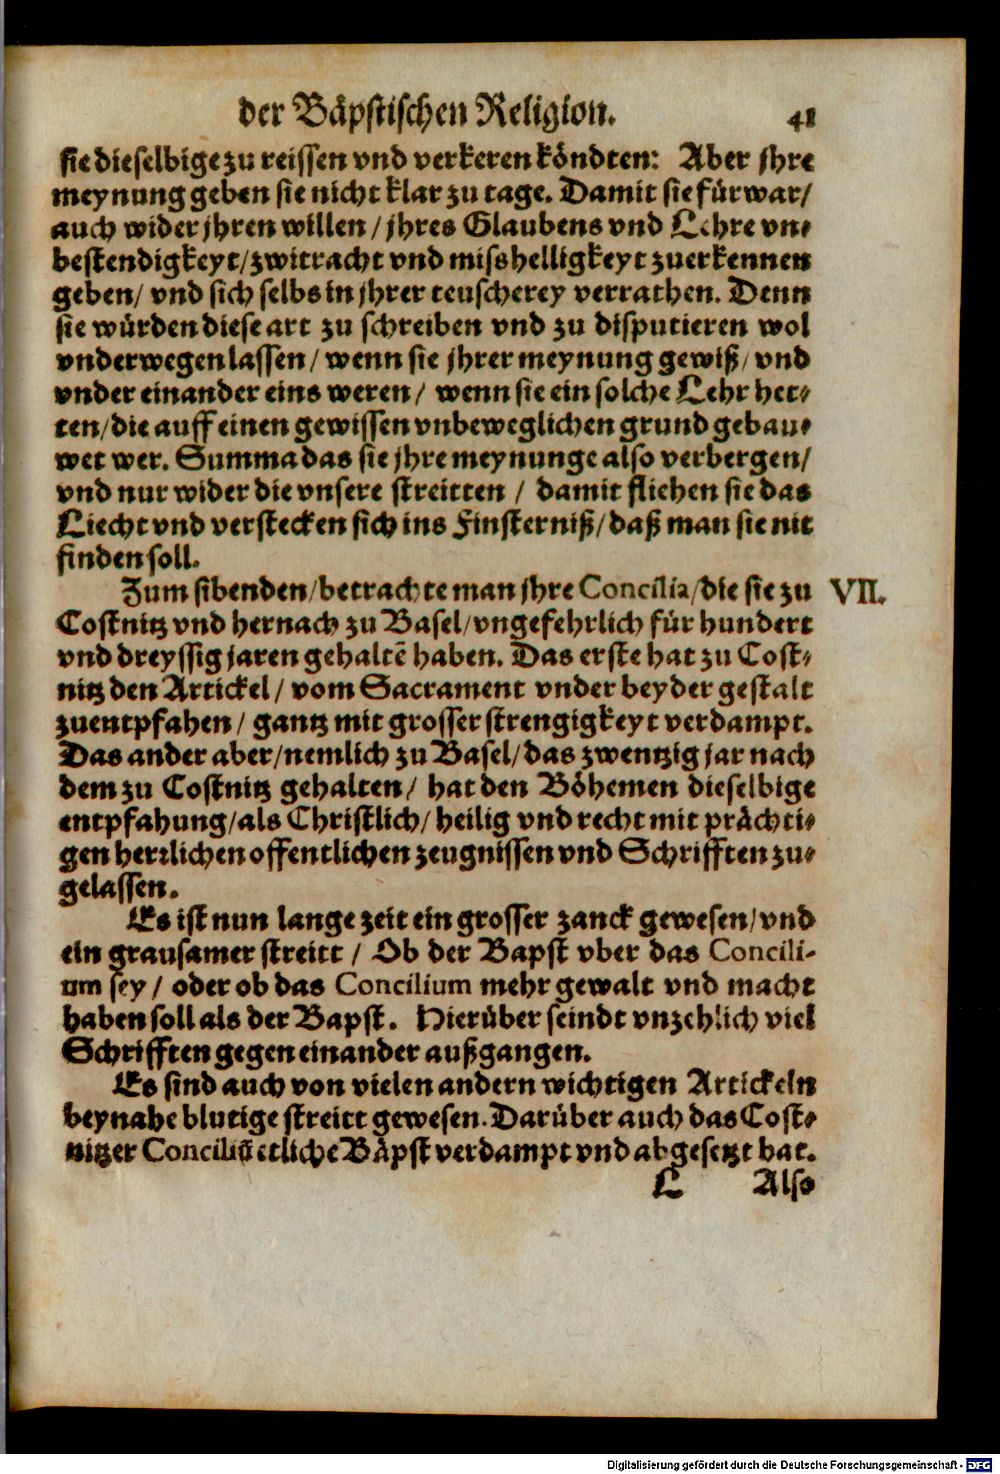 der Bäpstischen Religion. 41
sie dieselbige zu reissen vnd verkeren köndten: Aber jhre
meynung geben sie nicht klar zu tage. Damit sie fürwar/
auch wider jhren willen / jhres Glaubens vnd Lehre vn-
bestendigkeyt/ zwitracht vnd misshelligkeyt zuerkennen
geben/ vnd sich selbs in jhrer teuscherey verrathen. Denn
sie würden diese art zu schreiben vnd zu disputieren wol
vnderwegen lassen / wenn sie jhrer meynung gewiß/ vnd
vnder einander eins weren / wenn sie ein solche Lehr het-
ten/ die auff einen gewissen vnbeweglichen grund gebau-
wet wer. Summa das sie jhre meynunge also verbergen/
vnd nur wider die vnsere streitten / damit fliehen sie das
Liecht vnd verstecken sich ins Finsterniß/ daß man sie nit
finden soll.
Zum sibenden/ betrachte man jhre Concilia/ die sie zu VII.
Costnitz vnd hernach zu Basel/ vngefehrlich für hundert
vnd dreyssig jaren gehaltē haben. Das erste hat zu Cost-
nitz den Artickel / vom Sacrament vnder beyder gestalt
zuentpfahen / gantz mit grosser strengigkeyt verdampt.
Das ander aber/ nemlich zu Basel/ das zwentzig jar nach
dem zu Costnitz gehalten / hat den Böhemen dieselbige
entpfahung/ als Christlich/ heilig vnd recht mit prächti-
gen herrlichen offentlichen zeugnissen vnd Schrifften zu-
gelassen.
Es ist nun lange zeit ein grosser zanck gewesen/ vnd
ein grausamer streitt / Ob der Bapst vber das Concili-
um sey / oder ob das Concilium mehr gewalt vnd macht
haben soll als der Bapst. Hierüber seindt vnzehlich viel
Schrifften gegen einander außgangen.
Es sind auch von vielen andern wichtigen Artickeln
beynahe blutige streitt gewesen. Darüber auch das Cost-
nitzer Conciliū etliche Bäpst verdampt vnd abgesetzt hat.
L Also
Digitalisierung gefördert durch die Deutsche Forschungsgemeinschaft - DFG